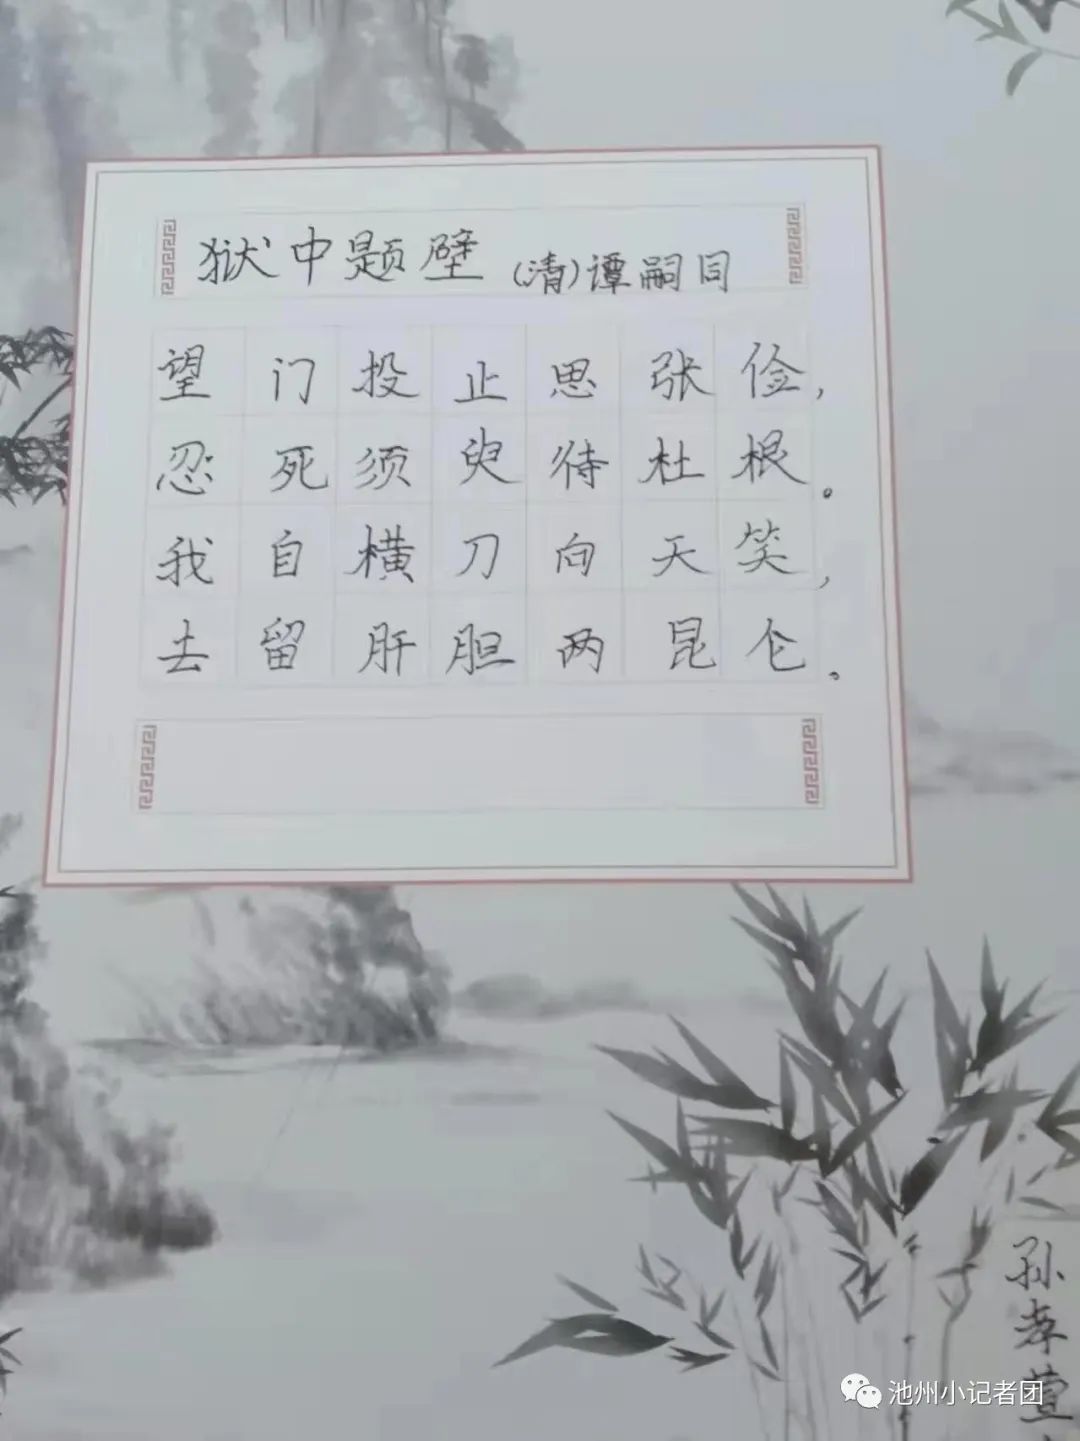 狱中题壁 (清)谭嗣同
望门投止思张俭,
忍死须臾待杜根。
我自横刀向天笑,
去留肝胆两昆仑。
孙孝萱
池州小记者团